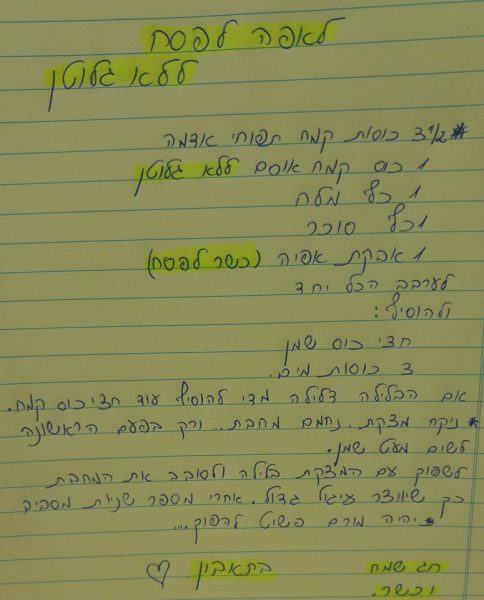 לאפה לפסח
ללא גלוטן
* 3 1/2 כוסות קמח תפוחי אדמה
1 כוס קמח אוסם ללא גלוטן
1 כף מלח
1 כף סוכר
1 אבקת אפיה (כשר לפסח)
לערבב הכל יחד
ולהוסיף:
חצי כוס שמן
3 כוסות מים.
אם הבלילה דלילה מדי להוסיף עוד חצי כוס קמח.
* ניקח מצקת. נחמם מחבת... ורק בפעם הראשונה
לשים מעט שמן.
לשפוך עם המצקת בלילה ולסובב את המחבת
כך שיווצר עיגול גדול. אחרי מספר שניות מסביב
יהיה מורם פשוט להפוך...
חג שמח בתאבון ♡
וכשר.